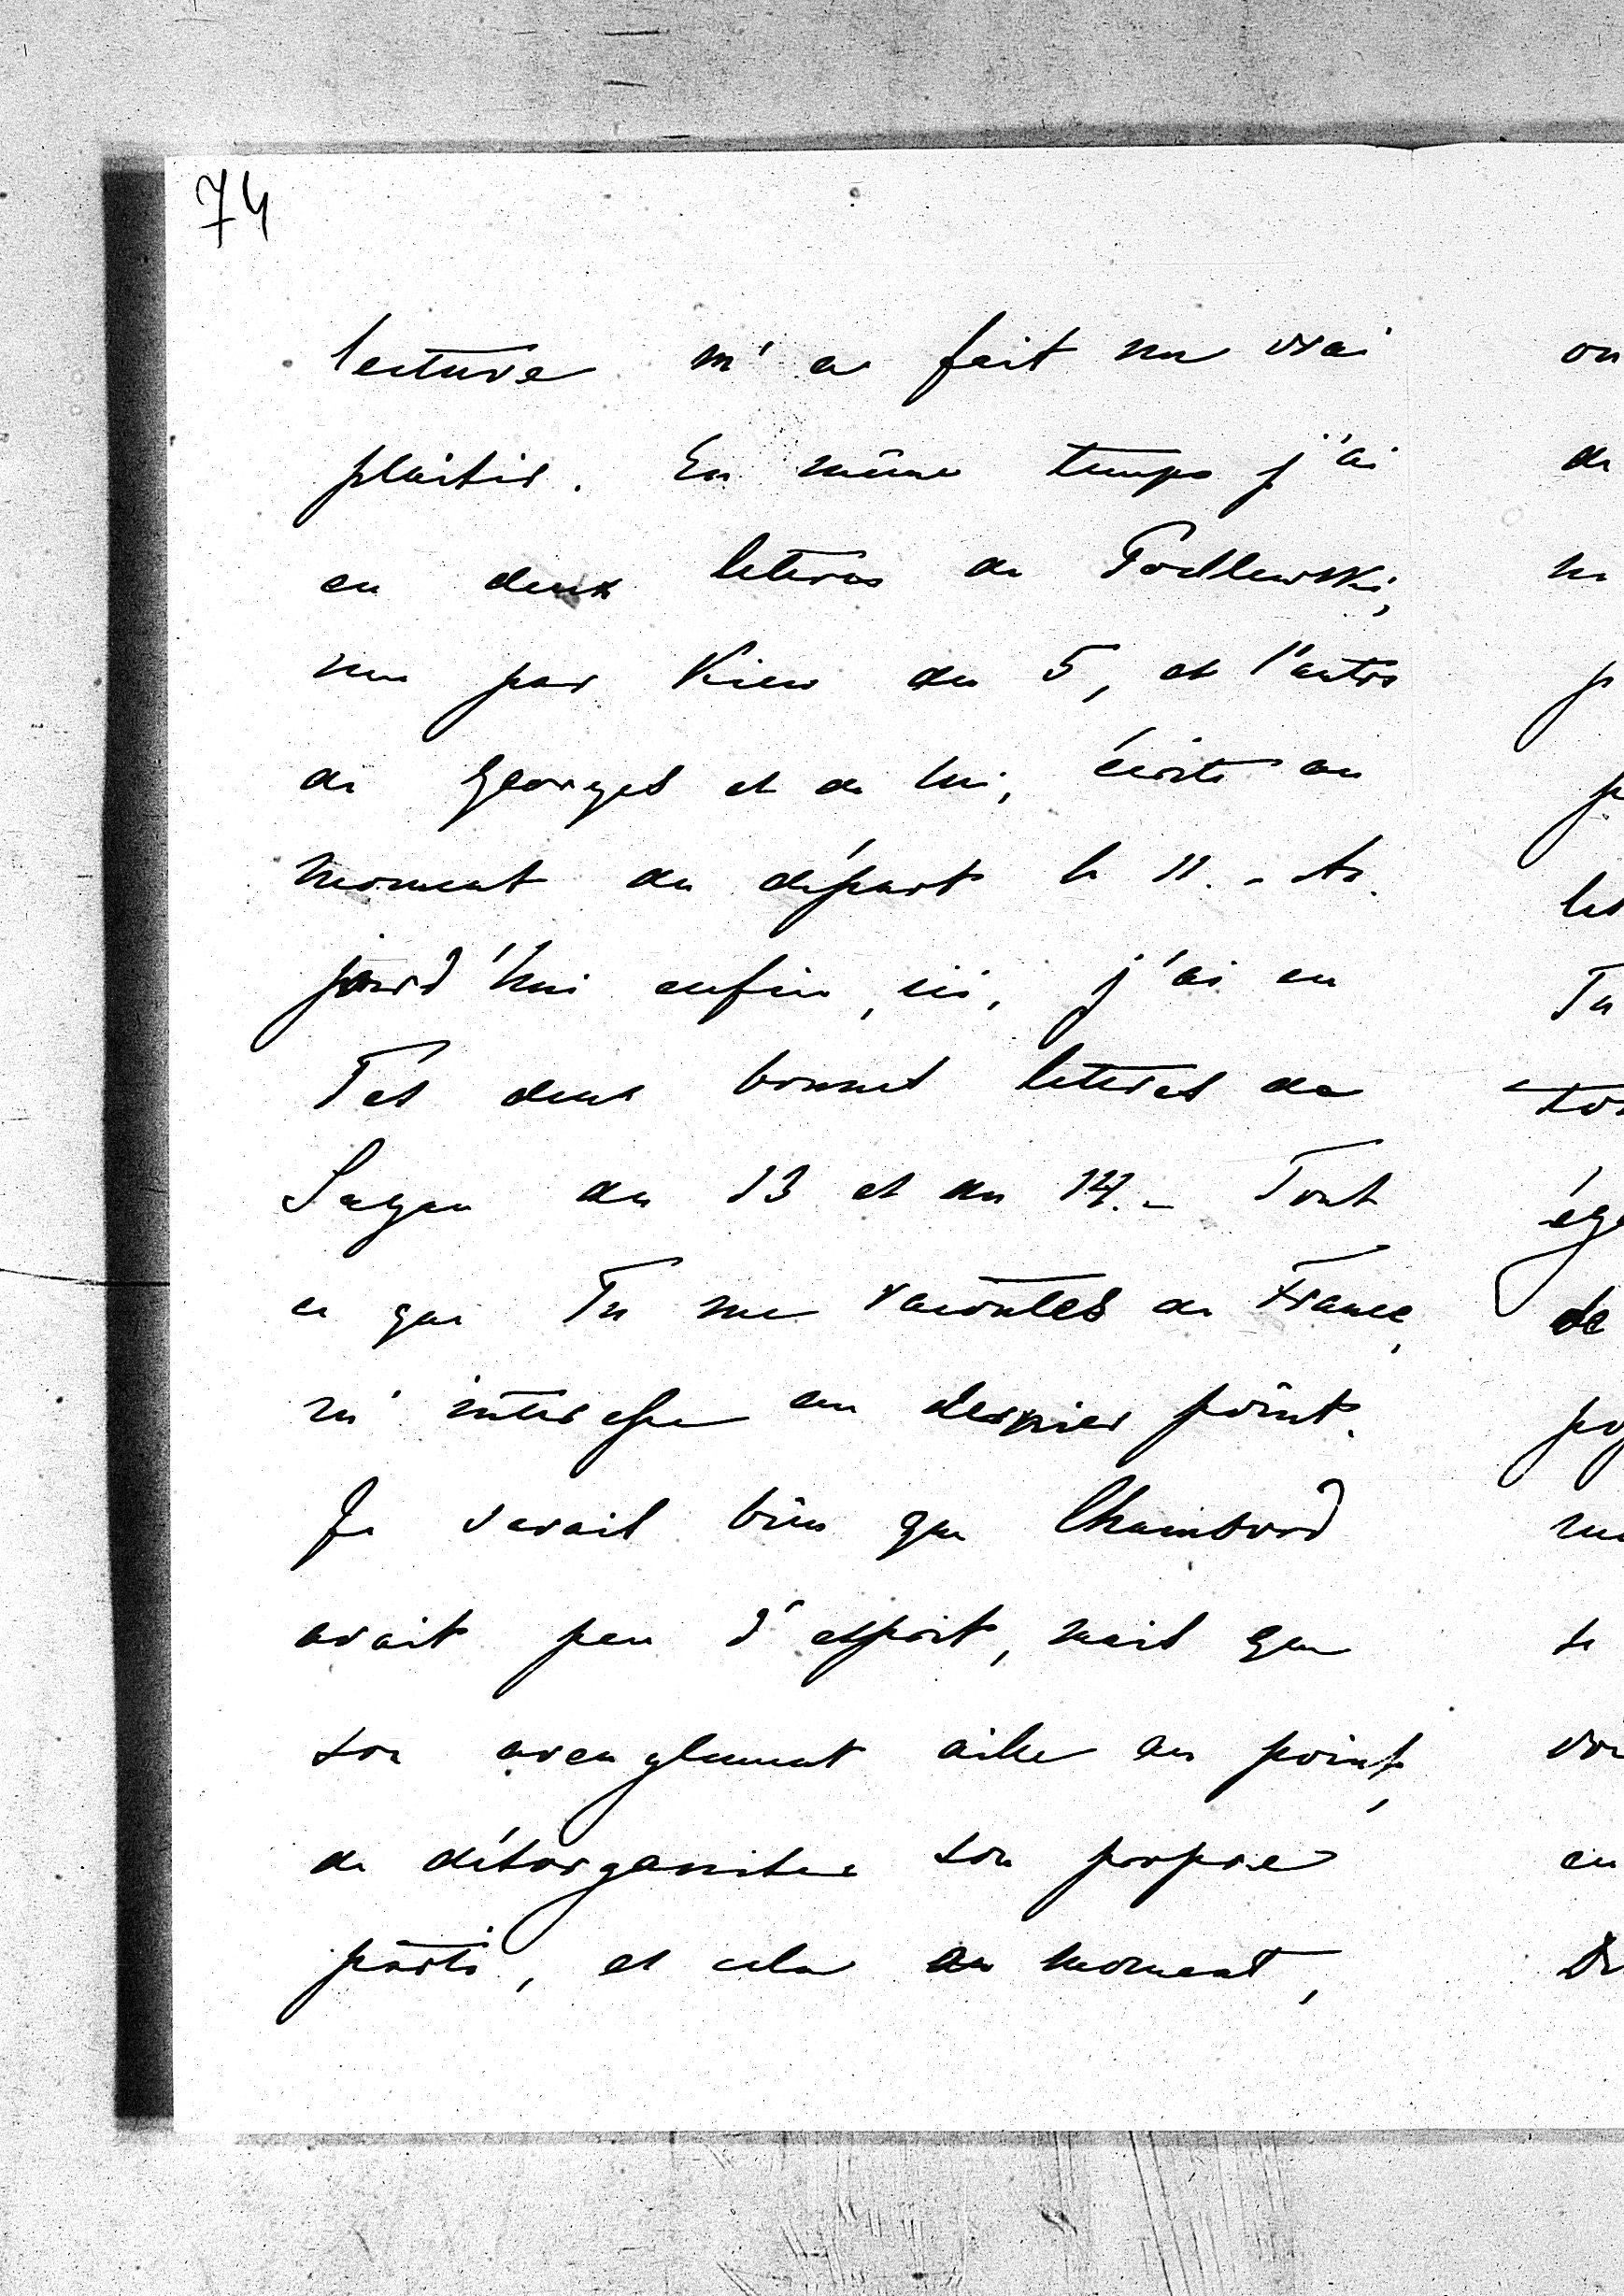 74
lecture m'a fait un vrai
plaisir. En même temps j'ai
eu deux lettres de Podlewski,
une par Kiew du 5, et l'autre
de Georges et de lui, écrite au
moment du départ le 11. - Au-
jourd'hui enfin, ici, j'ai eu
Tes deux bonnes lettres de
Sagan du 13 et du 14. - Tout
ce que Tu me racontes de France,
m'intéresse au dernier point.
Je savais bien que Chambord
avait peu d'esprit, mais que
son aveuglement aille au point,
de désorganiser son propre
parti, et cela au moment,
on
de
ne
p
p
les
Tu
ég
de
po
se
en